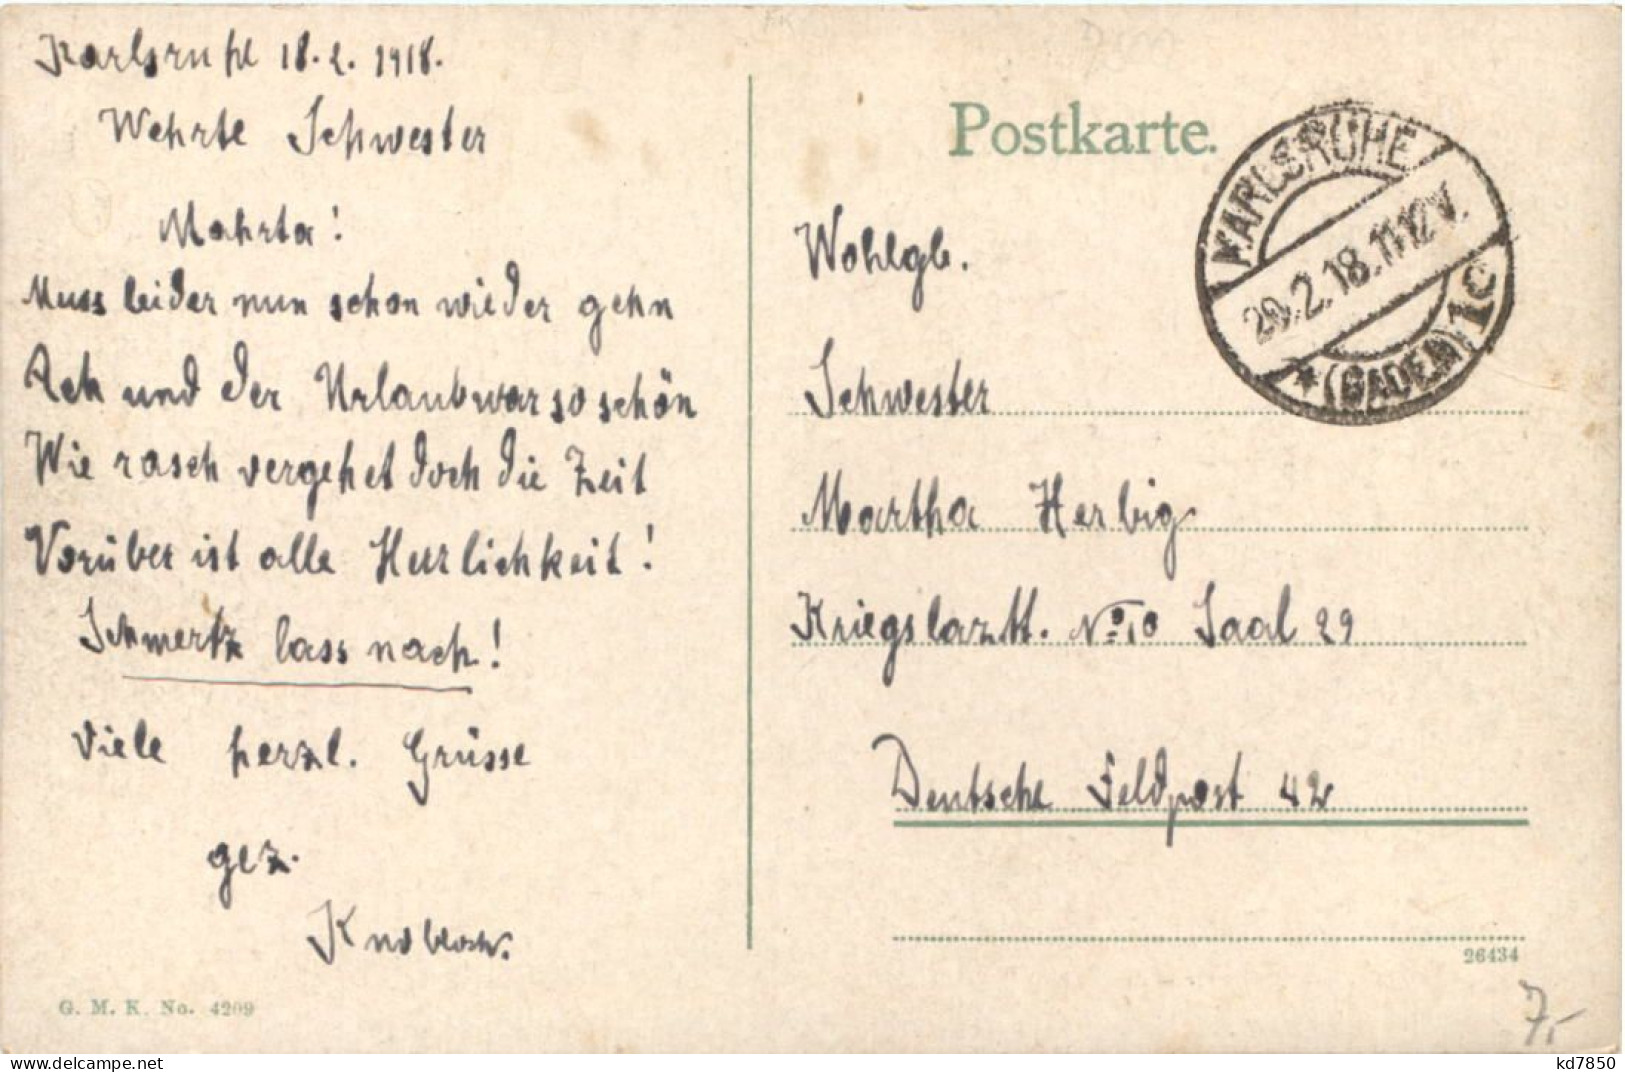 Karlsruhe 18.2.1918.
Wehrte Schwester
Mahrta!
Muss leider nun schon wieder gehn
Ach und der Urlaub war so schön
Wie rasch vergehet doch die Zeit
Vorüber ist alle Herrlichkeit!
Schmertz lass nach!
Viele herzl. Grüsse
gez.
Knobloch.
G. M. K. No. 4209
Postkarte.
KARLSRUHE
20.2.18.11-12V.
*(BADEN) 1c
Wohlgb.
Schwester
Martha Herbig
Kriegslaztt. No 10 Saal 29
Deutsche Feldpost 42
26434
7,-
kd7850